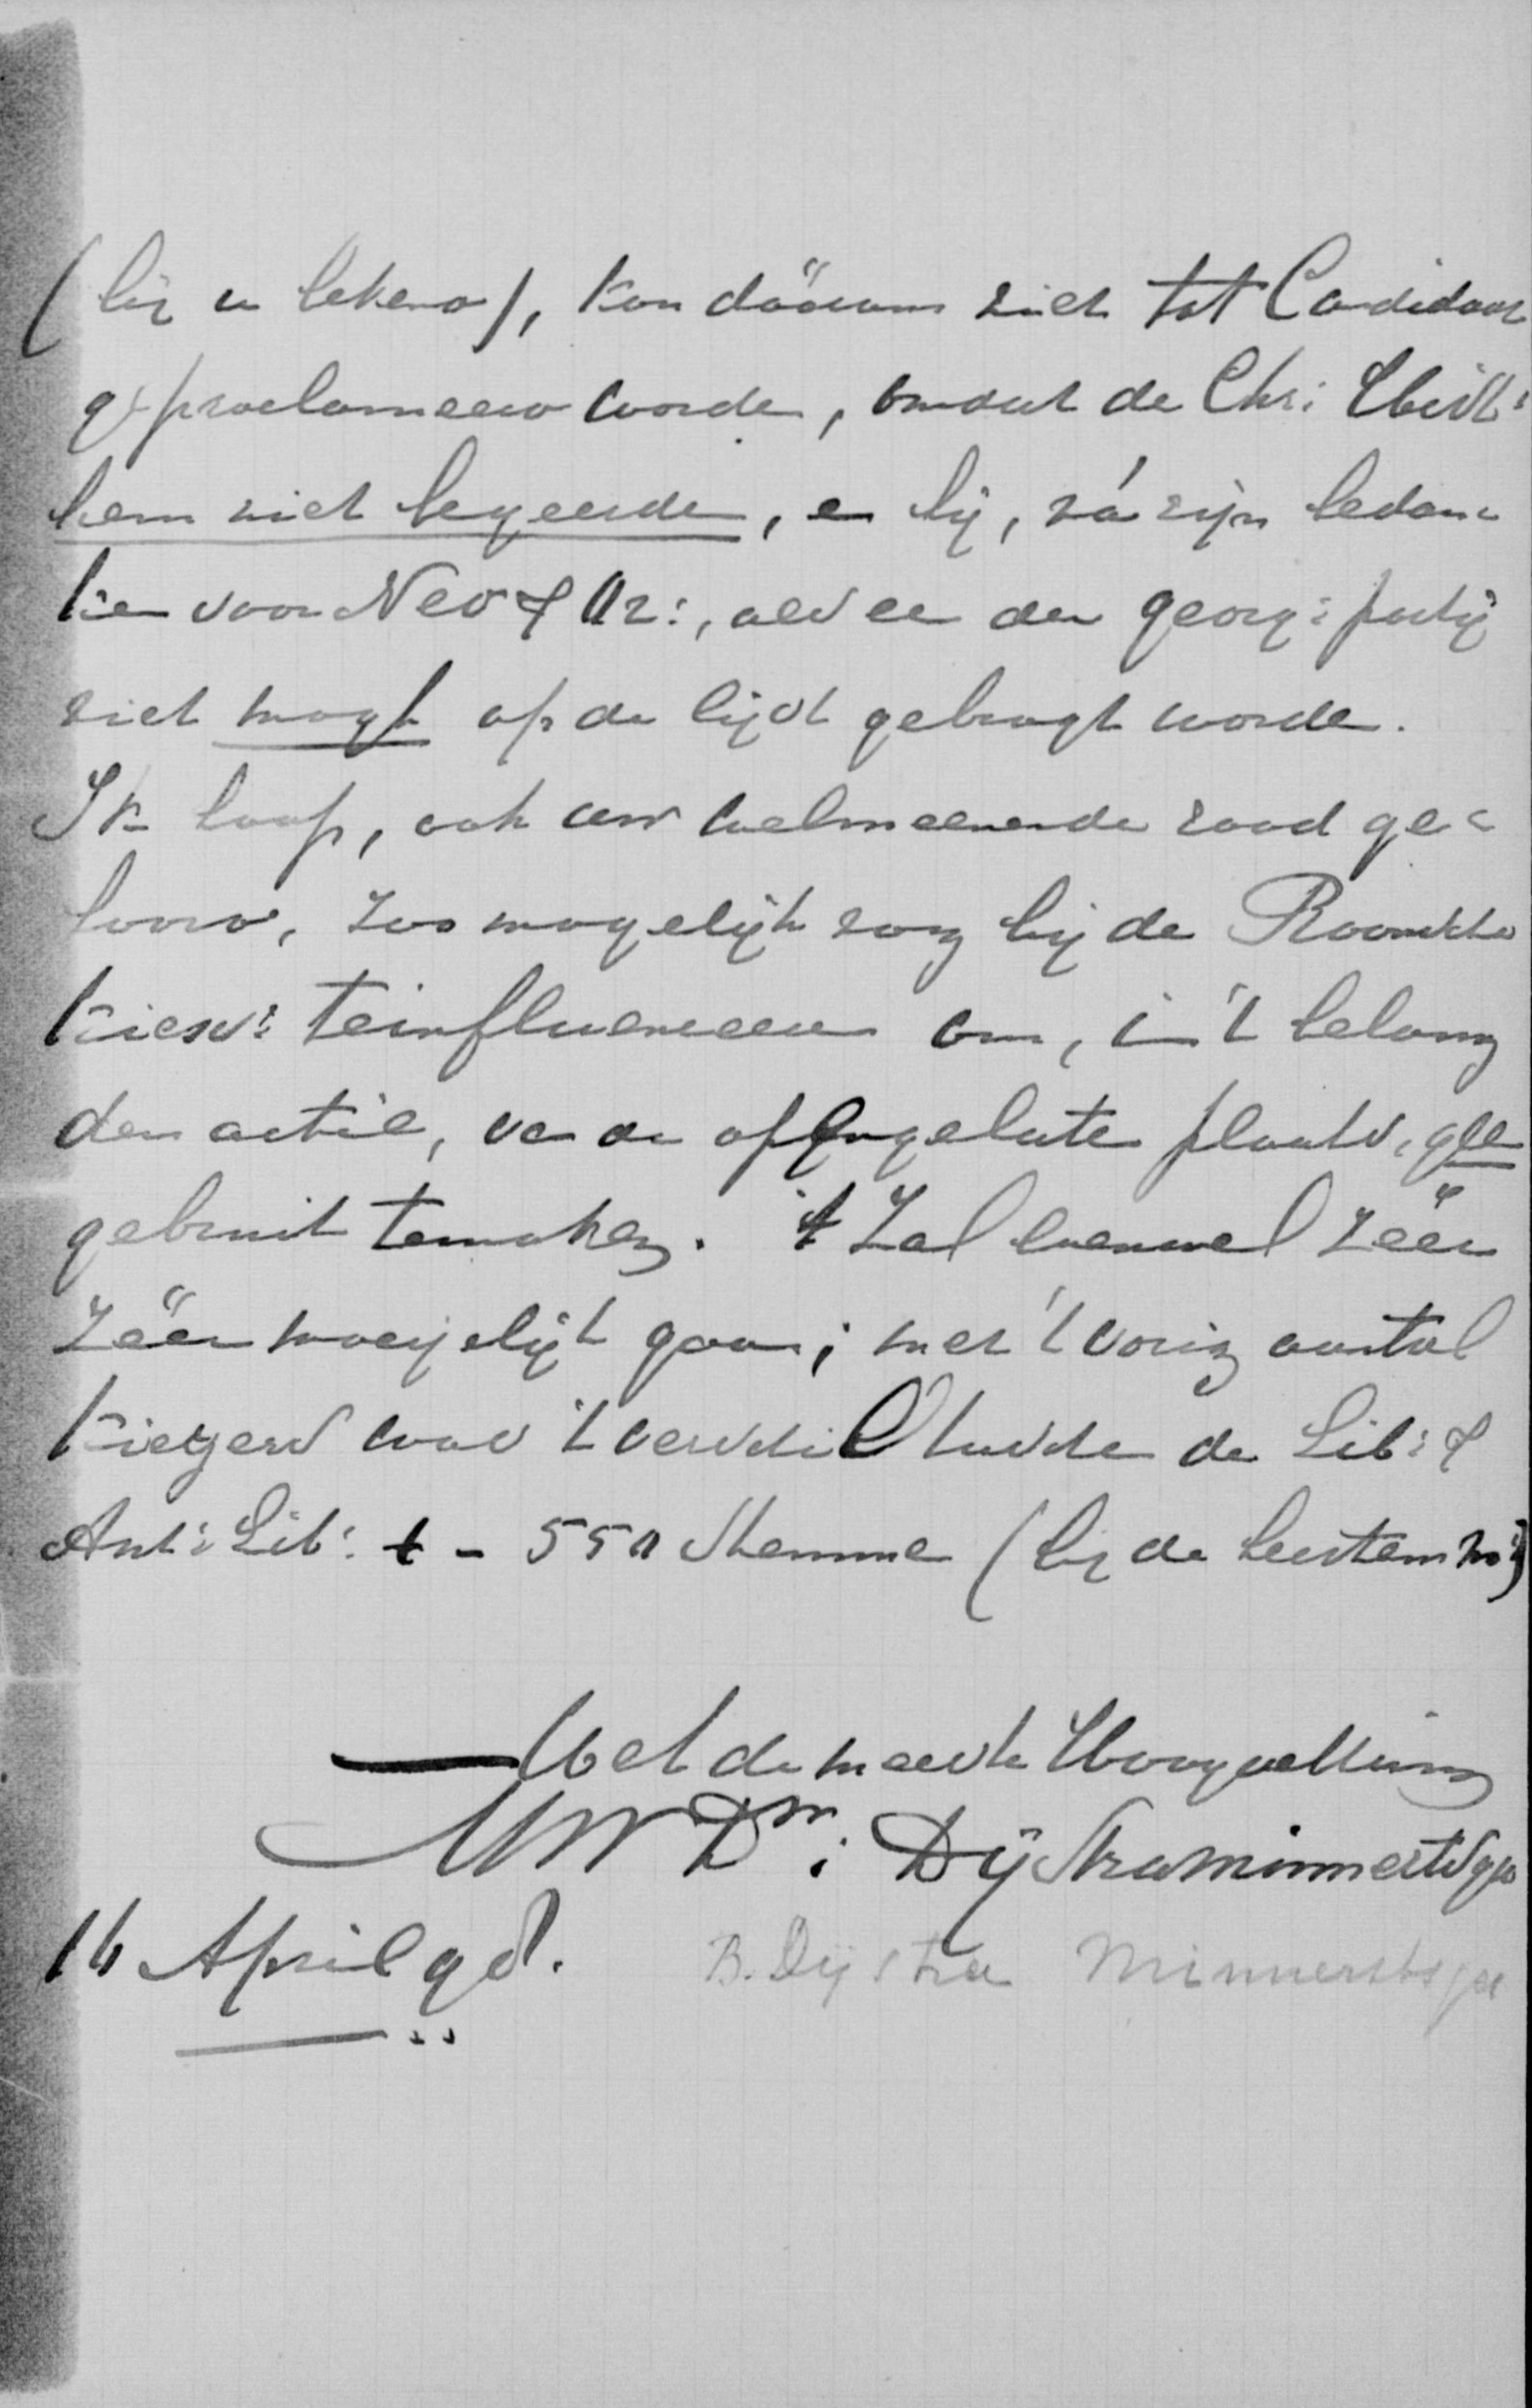 (bij u bekend), kon dáárom niet tot Candidaat
geproclameerd worden, omdat de Chr: Hist:
hem niet begeerde, en hij, ná zijn bedan=
ken voor Ned & Ar:, als een der georg: partij
niet mogt op de lijst gebragt worden.
Ik hoop, ook uw welmeenende raad ge=
hoord, zoo mogelijk nog bij de Roomsche
kiesv: te influenceeren om, in 't belang
der actie, van de opengelaten plaats, geen
gebruik te maken. 't Zal evenwel zéér
zéér moeijelijk gaan; met 't vorig aantal
kiezers was 't verschil tusschen de Lib: &
Anti Lib: + - 550 stemmen (bij de herstemm:)
Met de meeste Hoogachting
UW Dr: Dijkstra Minnertsga
16 April 98.
B. Dijkstra Minnertsga